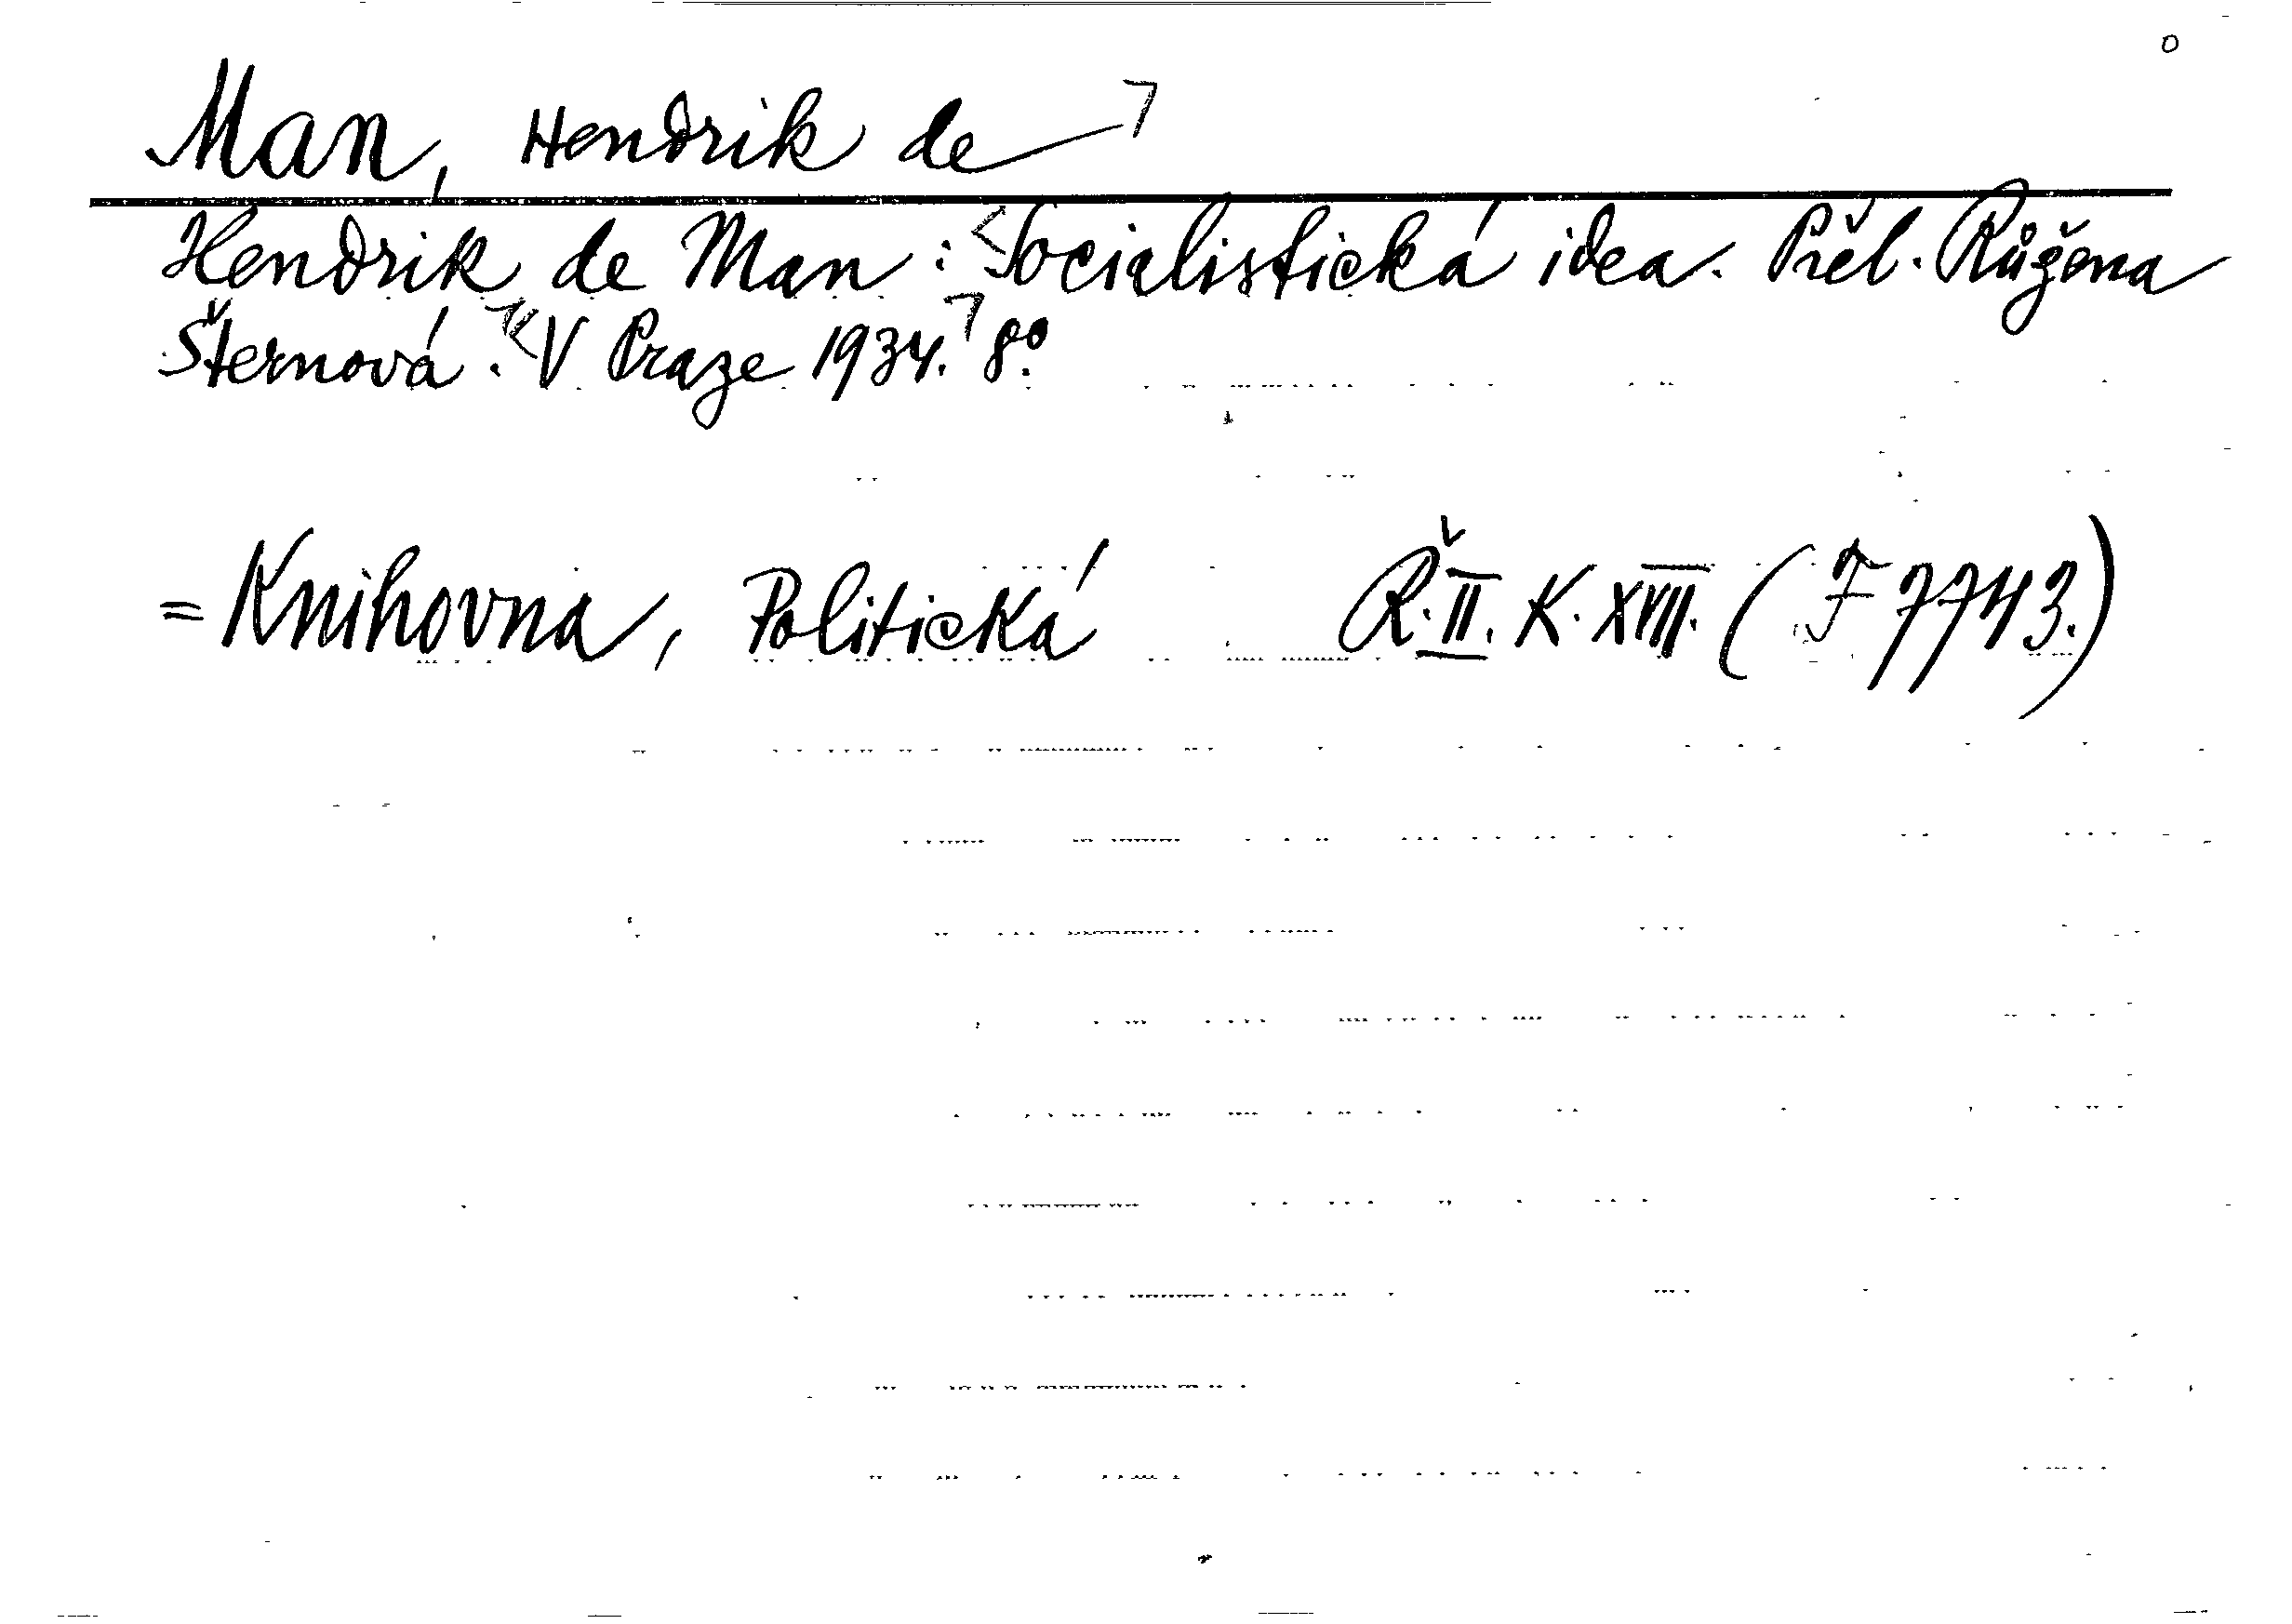 Man, Hendrik de
Hendrik de Man: Socialistická idea. Přel. Růžena
Šternová. V Praze 1934. 8°.
= Knihovna, Politická Ř. II. K. XVIII. (F 7743.)